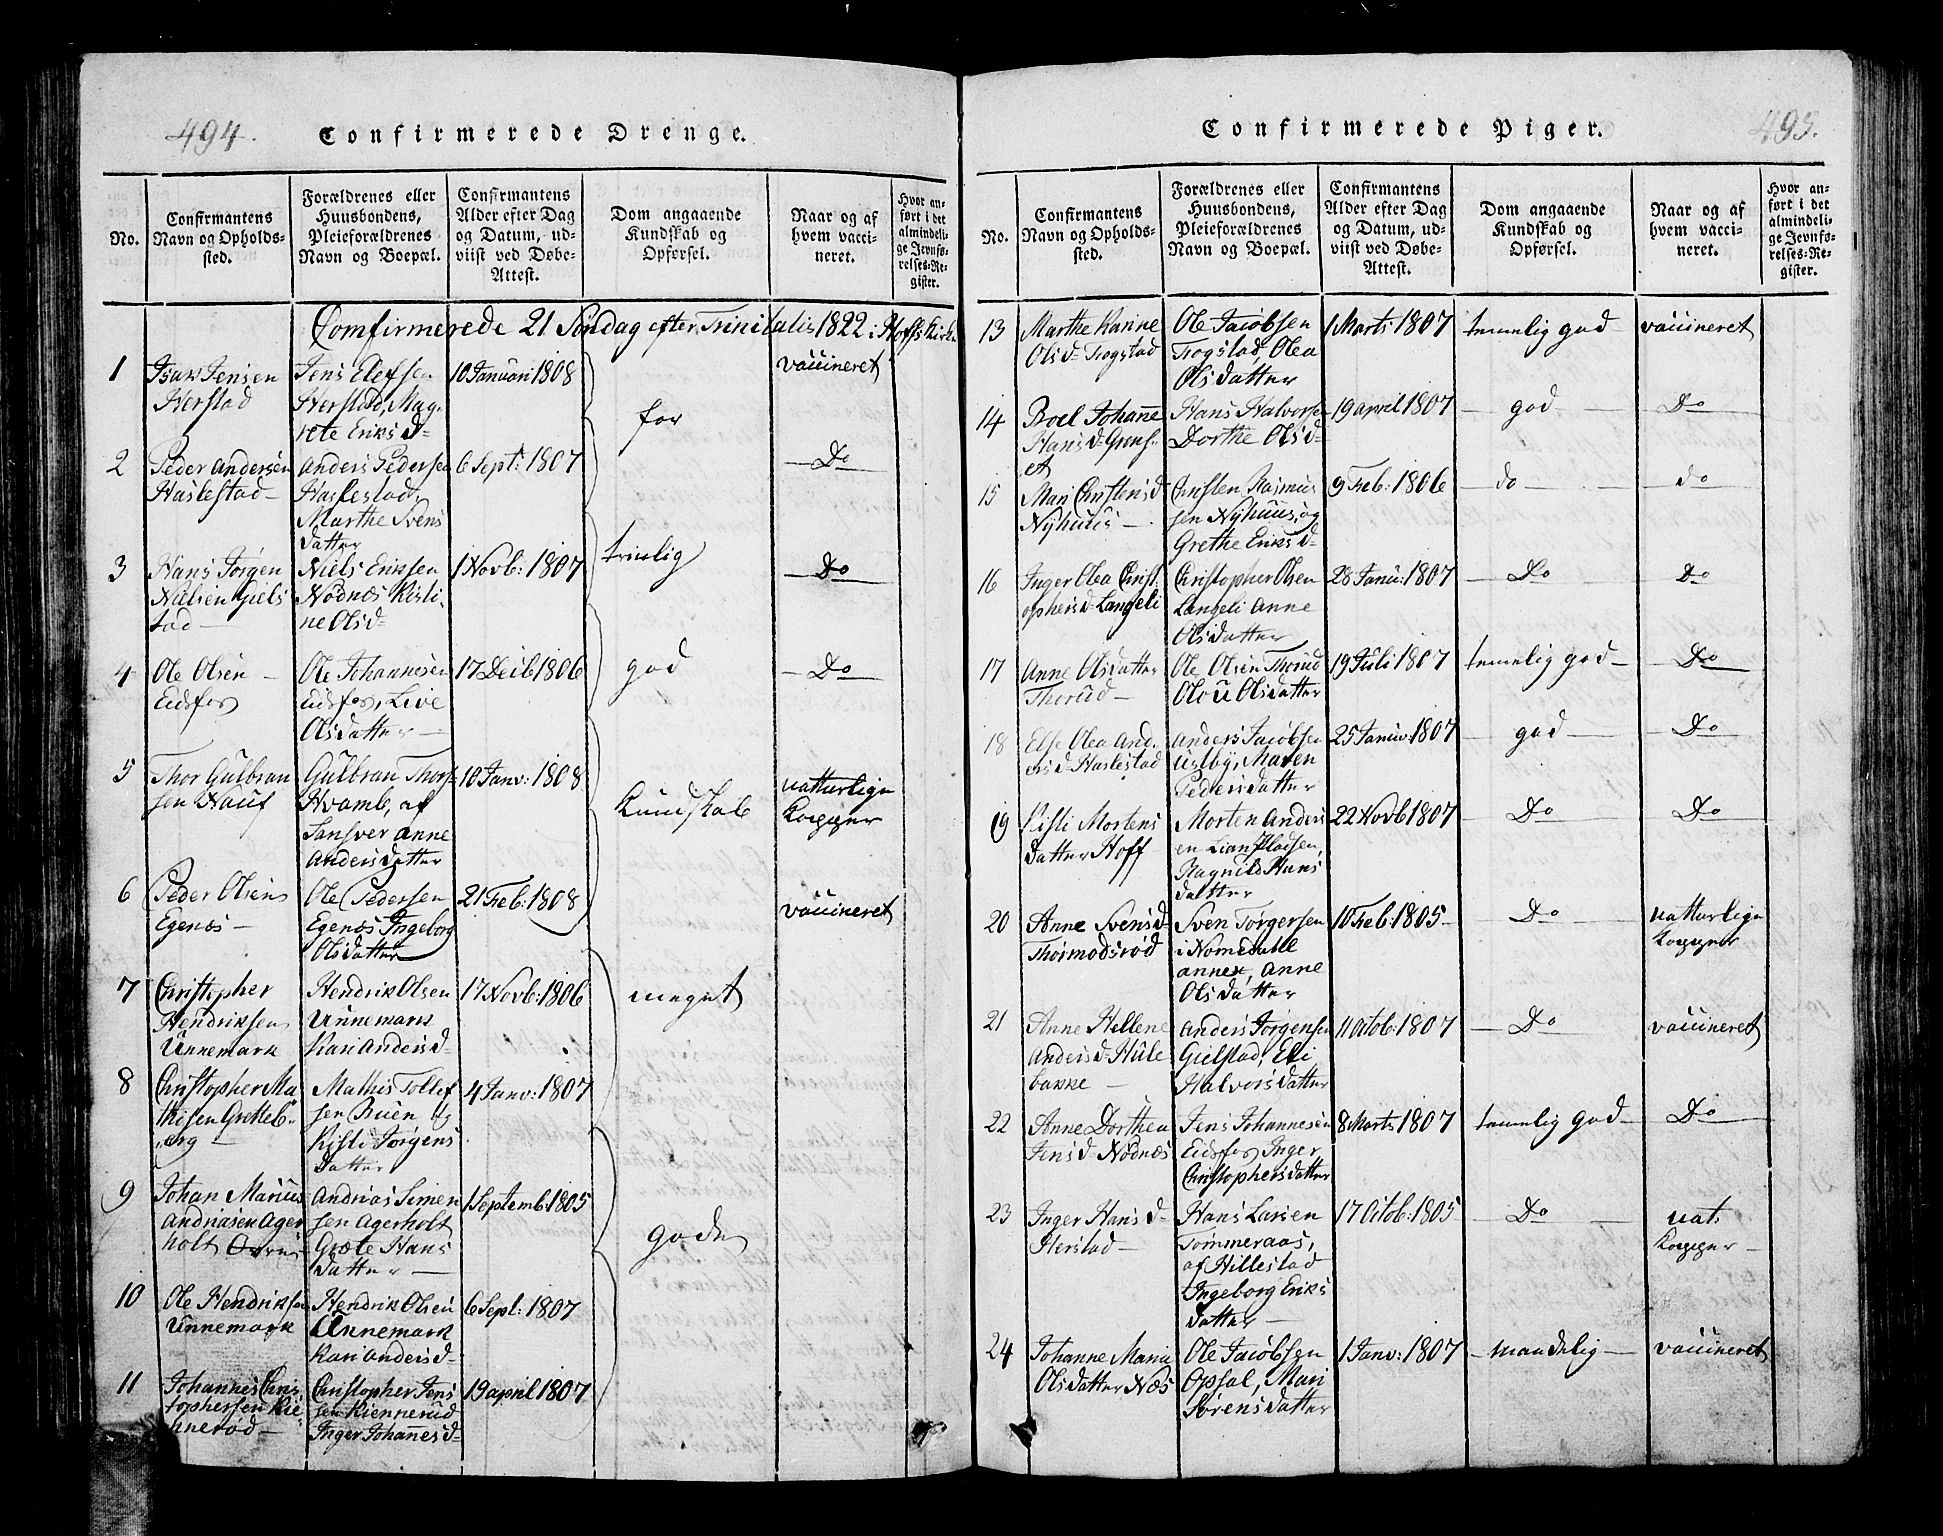 494.
Confirmerede Drenge.
No.
Confirmantens
Navn og Opholds-
sted.
Forældrenes eller
Huusbondens,
Pleieforældrenes
Navn og Boepæl.
Confirmantens
Alder efter Dag
og Datum, ud-
viist ved Døbe-
Attest.
Dom angaaende
Kundskab og
Opførsel.
Naar og af
hvem vacci-
neret.
Hvor an-
ført i det
almindeli-
ge Jevnfø-
relses-Re-
gister.
Comfirmerede 21 Søndag efter Trinitatis 1822 i Hoffs Kirke
1
Isak Jensen
Herstad
Jens Elefsen
Herstad, Mag-
rete Eriks D-
10 Januari 1808
vaccineret
2
Peder Andersen
Haslestad
Anders Pedersen
Haslestad,
Marthe Svens
Datter
6 Sept: 1807
Do
3
Hans Jørgen
Nilsen Giels
tad
Niels Eriksen
Nødnæs Kisti-
ne Olsd-
1 Novb: 1807
Do
4
Ole Olsen
Eidsfos
Ole Johannesen
Eidsfos, Live
Olsdatter
17 Decb 1806
Do
5
Thor Gulbran
sen Hauf
Gulbran Thors-
Hvamb, af
Sansver Anne
Anders Datter
10 Janv: 1808
natturlige
Kopper
6
Peder Olsen
Egenæs
Ole Pedersen
Egenæs Ingeborg
Olsdatter
21 Feb: 1808
vaccineret
for
trinlig
god
Kundskab
7
Christopher
Hendriksen
Unnemark
Hendrik Olsen
Unnemark
Kari Andersd-
17 Novb: 1806
8
Christopher Ma
thisen Gretteb-
erg
Mathis Tollef
sen Buen og
Kisti Jørgens
Datter
4 Janv: 1807
9
Johan Marius
Andriasen Ager
holt
Andrias Simen
sen Agerholt
Græte Hans
Datter
1 Septemb: 1805
10
Ole Hendriksen
Unnemark
Hendrik Olsen
Unnemark
Kari Andersd-
6 Sept: 1807
11
Johannes Chris
tophersen Kie-
nnerød
Christopher Jens
sen Kiennerud
Inger Johanesd-
19 april 1807
meget
gode
495.
Confirmerede Piger.
No.
Confirmantens
Navn og Opholds-
sted.
Forældrenes eller
Huusbondens,
Pleieforældrenes
Navn og Boepæl.
Confirmantens
Alder efter Dag
og Datum, ud-
viist ved Døbe-
Attest.
Dom angaaende
Kundskab og
Opførsel.
Naar og af
hvem vacci-
neret.
Hvor an-
ført i det
almindeli-
ge Jevnfø-
relses-Re-
gister.
13
Marthe Karine
Olsd- Trogstad
Ole Jacobsen
Trogstad, Olea
Olsdatter
1 Marts 1807
temelig god
vaccineret
14
Boel Johanne
Hansd- Grens-
et
Hans Halvorsen
Dorthe Olsd-
19 april 1807
god
Do
15
Mari Christensd
Nyhuus
Christen Rasmus
sen Nyhuus, og
Grethe Eriksd-
9 Feb: 1806
do
do
16
Inger Olea Christ
ophersd- Langeli
Christopher Olsen
Langeli Anne
Olsdatter
28 Janu: 1807
Do
Do
17
Anne Olsdatter
Thorud
Ole Olsen Thorud
Olou Olsdatter
19 Juli 1807
temelig god
Do
18
Else Olea And-
ersd- Haslestad
Anders Jacobsen
Uslby, Maren
Pedersdatter
25 Januv 1807
god
Do
19
Kisti Mortens
Datter Hoff
Morten Anders
en Lian Pladsen,
Ragnild Hans
datter
22 Novb 1807
Do
Do
20
Anne Svensd-
Thormodsrød
Sven Torgersen
i Nomedalle
annex, Anne
Olsdatter
10 Feb: 1805
Do
natturlige
Kopper
21
Anne Hellene
Andersd- Hule
bakke
Anders Jørgensen
Gielstad, Eli
Halvorsdatter
11 Octob: 1807
Do
vaccineret
22
Anne Dorthea
Jensd- Nødnæs
Jens Johannesen
Eidsfos Inger
Christophersdatter
8 Marts 1807
temelig god
Do
23
Inger Hansd-
Herstad
Hans Larsen
Tømmeraas,
af Hillestad
Ingeborg Eriks
datter
17 Octob: 1805
Do
nat:
Kopper
24
Johanne Maria
Olsdatter Næs
Ole Jacobsen
Opsal, Mari
Sørensdatter
1 Janv: 1807
maadelig
vaccineret